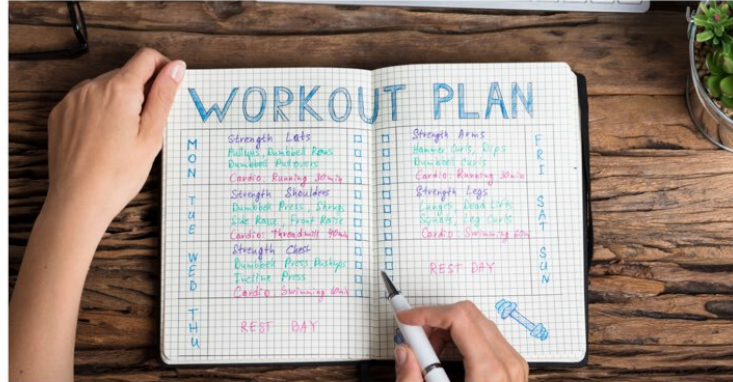 WORKOUT PLAN
MON
Strength Lats
Pullups, Dumbbell Rows
Dumbbell Pullovers
Cardio: Running 30min
TUE
Strength Shoulders
Dumbbell Press, Shrugs
Side Raise, Front Raise
Cardio: Threadmill 40min
WED
Strength Chest
Dumbbell Press, Pushups
Incline Press
Cardio Swimming 60min
THU
REST DAY
FRI
Strength Arms
Hammer Curls, Dips
Dumbbell Curls
Cardio: Running 30min
SAT
Strength Legs
Lunges, Dead Lifts
Squats, Leg Curls
Cardio: Swimming
SUN
REST DAY